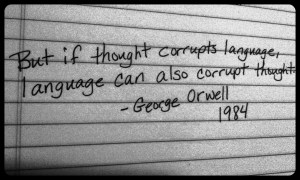 But if thought corrupts language,
language can also corrupt thought.
- George Orwell
1984